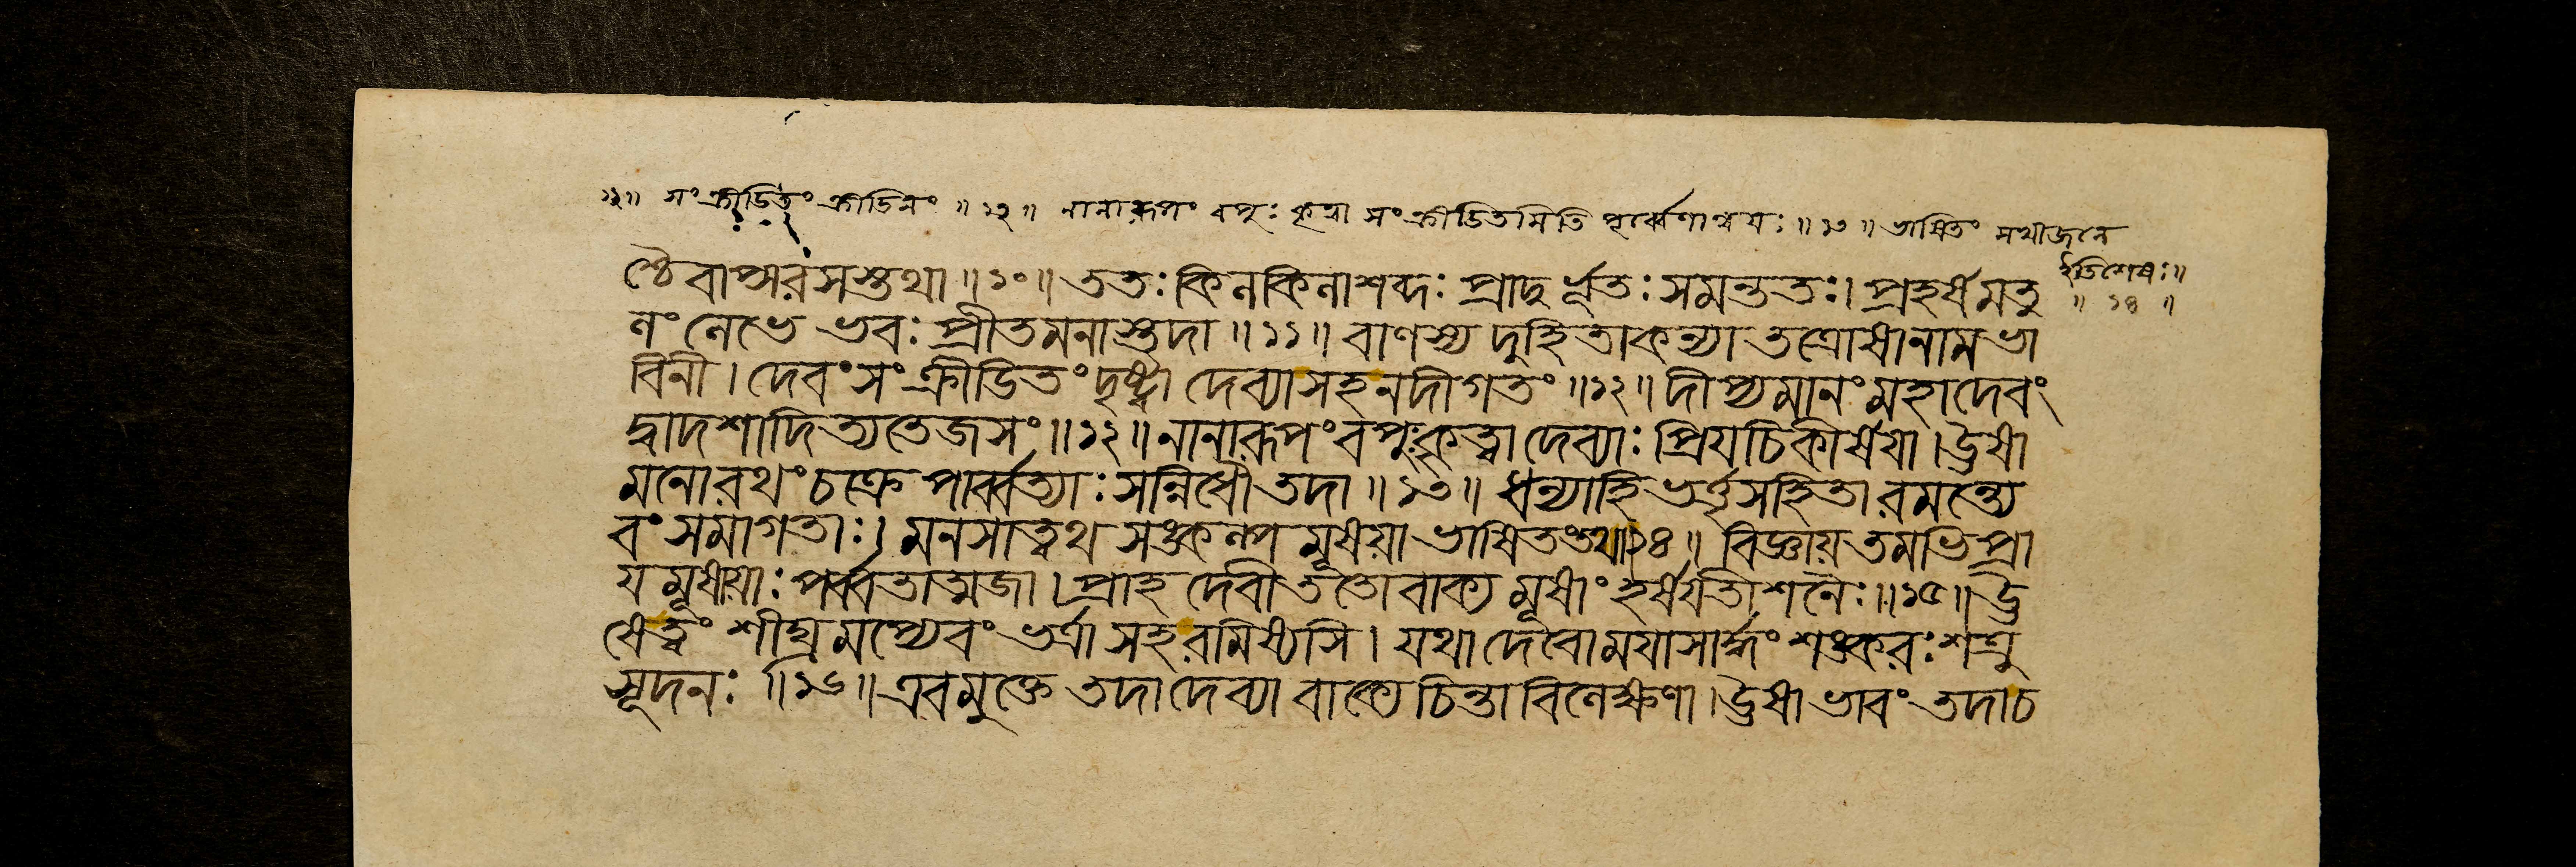 ১২॥ সংক্রীডিতং ক্রীডিনং ॥ ১২ ॥ নানারূপং বপুঃ কৃত্বা সংক্রীডিতমিতি পূর্ব্বেণান্বয়ঃ ॥ ১৩ ॥ ভাষিতং সখীজনে
ইতিশেষঃ॥
॥ ১৪ ॥
শ্চৈবাপ্সরসস্তথা ॥১০॥ ততঃ কিলকিলাশব্দঃ প্রাদুর্ভূতঃ সমন্ততঃ। প্রহর্ষমতু
লং লেভে ভবঃ প্রীতমনাস্তদা ॥১১॥ বাণস্য দুহিতাকন্যা তত্রোষানামভা
বিনী। দেবং সংক্রীডিতং দৃষ্ট্বা দেব্যাসহনদীগতং ॥১২॥ দীপ্যমানং মহাদেবং
দ্বাদশাদিত্যতেজসং ॥১২॥ নানারূপং বপুঃকৃত্বা দেব্যাঃ প্রিযচিকীর্ষযা। ঊষা
মনোরথং চক্রে পার্ব্বত্যাঃ সন্নিধৌ তদা ॥১৩॥ ধন্যাহি ভর্ত্তৃসহিতা রমন্ত্যে
বং সমাগতাঃ। মনসাত্বথ সঙ্কল্প মূষয়া ভাষিতন্তথা॥১৪॥ বিজ্ঞায় তমভিপ্রা
য মূষায়াঃ পর্ব্বতাত্মজা। প্রাহ দেবী ততো বাক্য মূষাং হর্ষযতী শনৈঃ॥১৫॥ ঊ
ষেত্বং শীঘ্র মপ্যেবং ভর্ত্রা সহ রমিষ্যসি। যথা দেবোময়াসার্দ্ধং শঙ্করঃ শত্রু
সূদনঃ ॥১৬॥ এবমুক্তে তদাদেব্যা বাক্যে চিন্তাবিলেক্ষণা। ঊষা ভাবং তদাচ